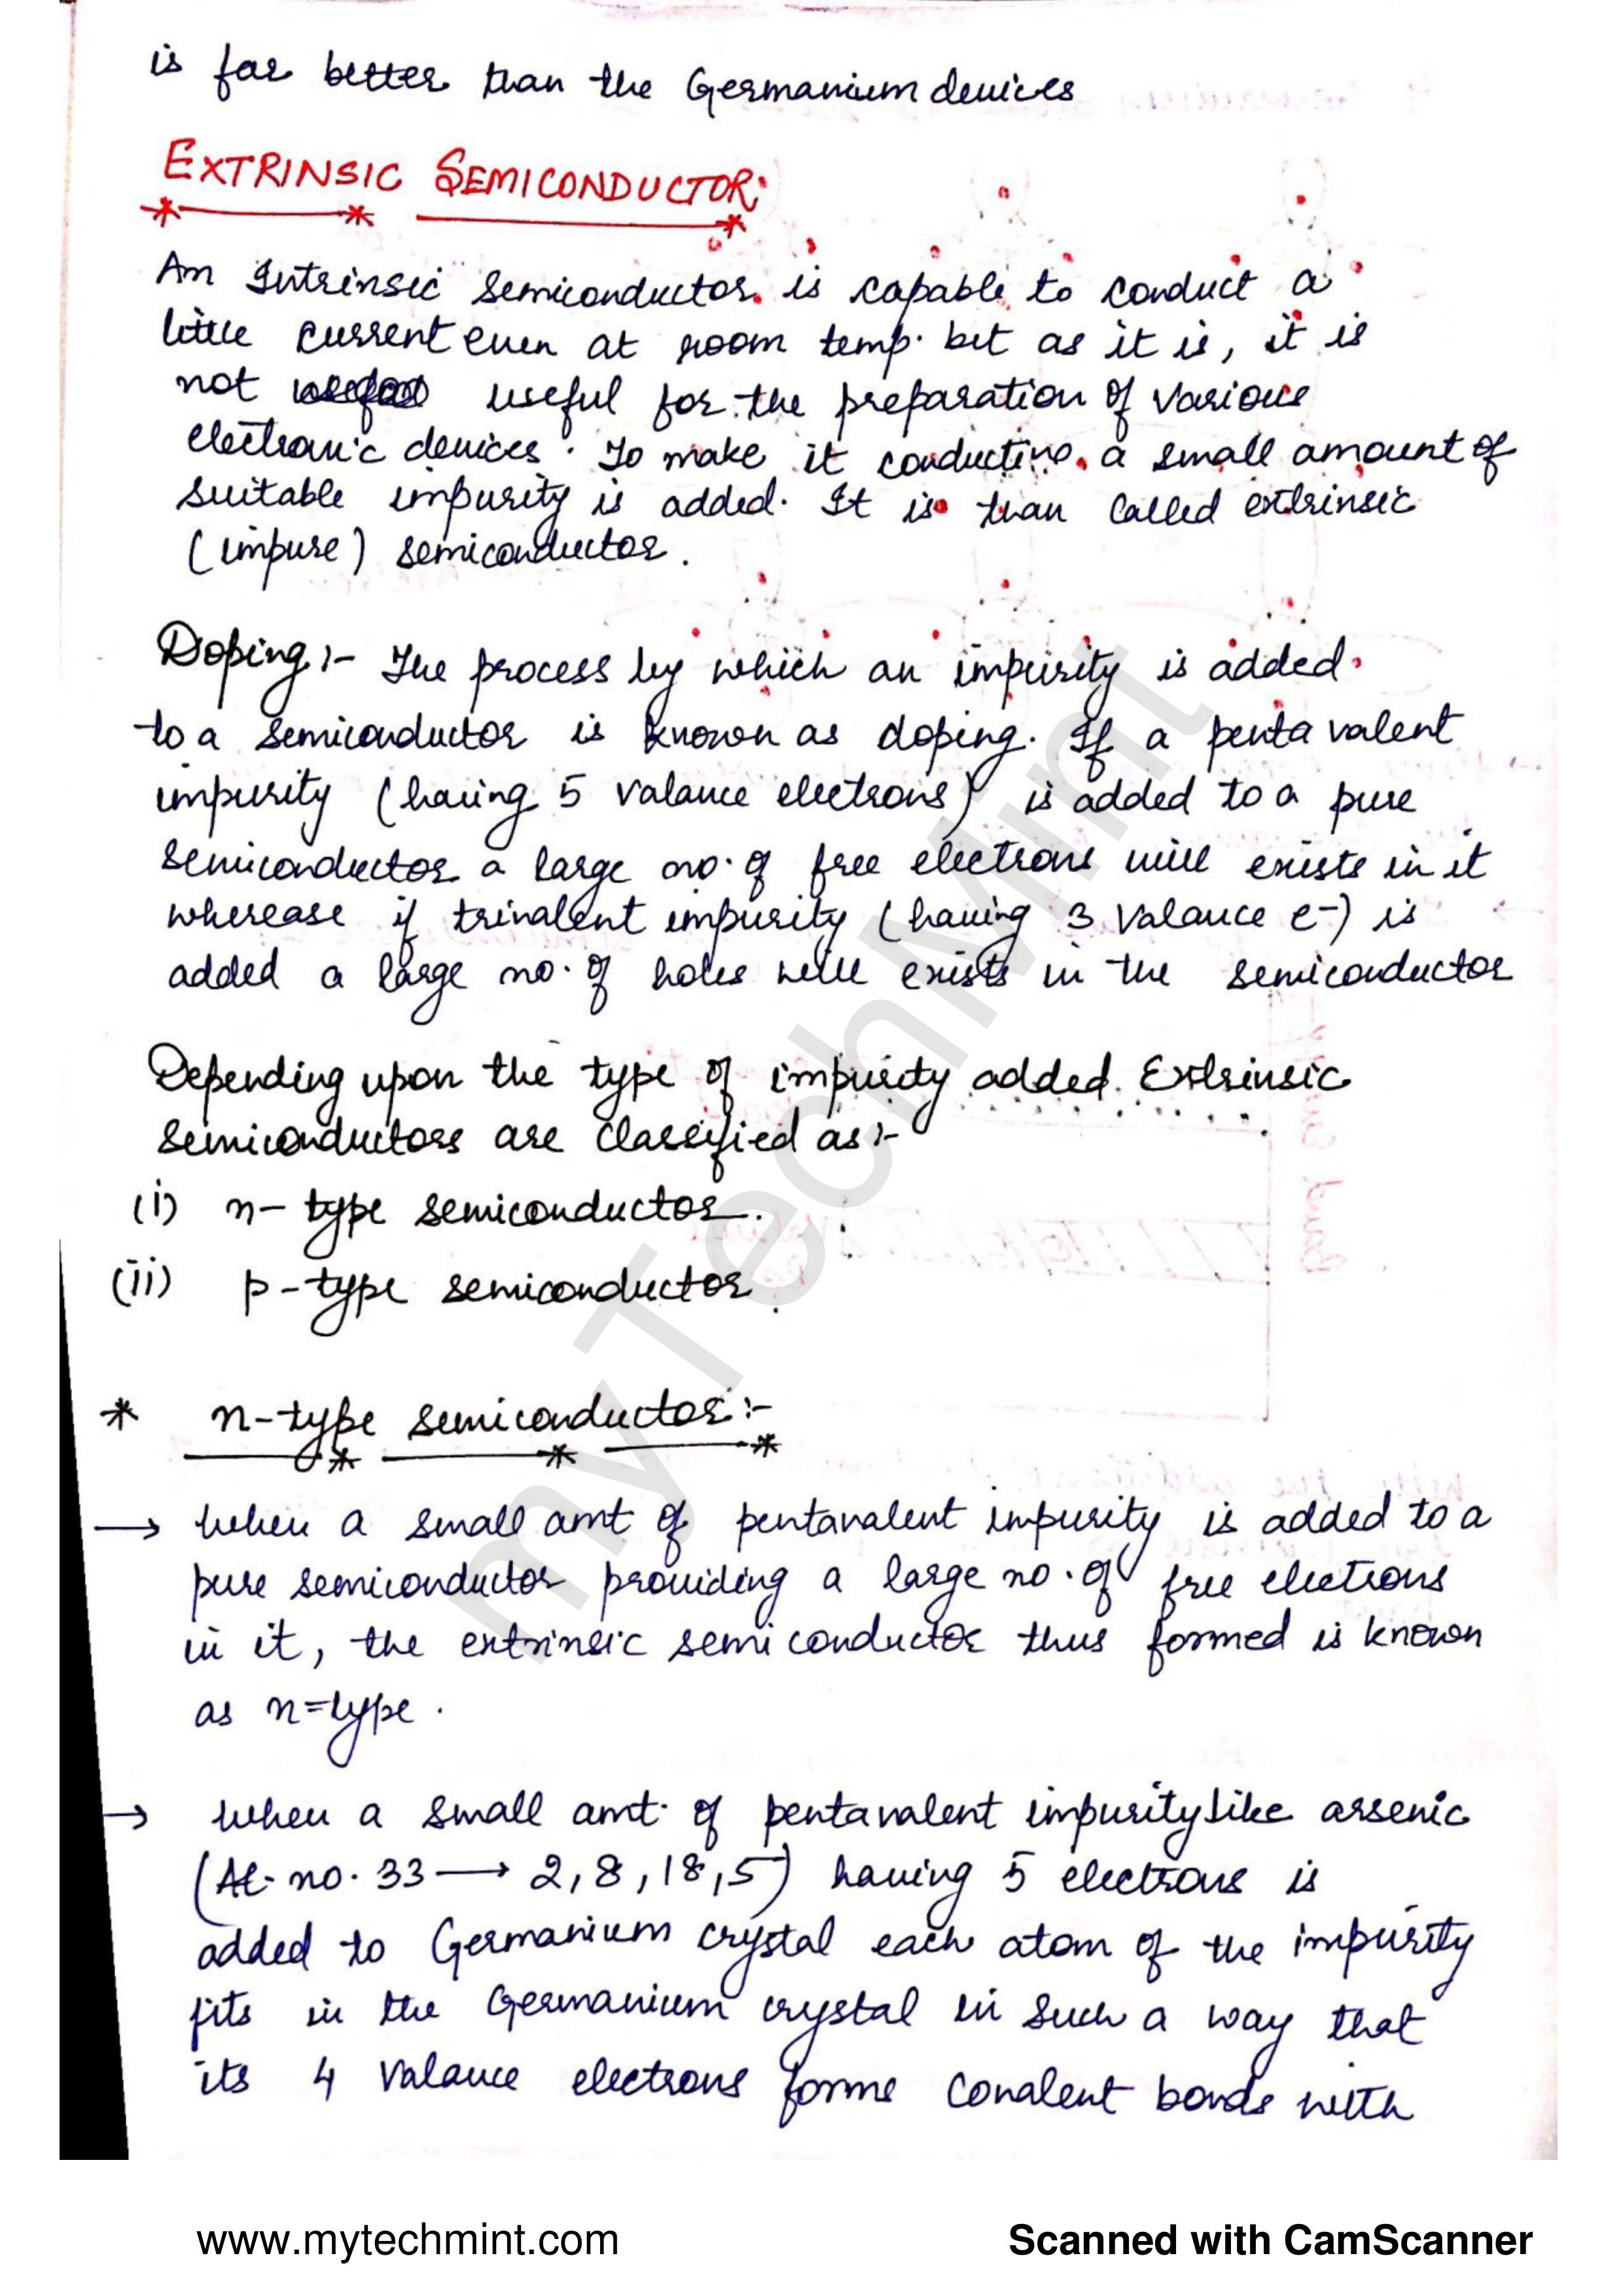 is far better than the Germanium devices
EXTRINSIC SEMICONDUCTOR:
An Intrinsic semiconductor is capable to conduct a
little current even at room temp. bet as it is, it is
not useful for the preparation of various
electronic devices. To make it conducting a small amount of
suitable impurity is added. It is than called extrinsic
(impure) semiconductor.
Doping :- The process by which an impurity is added
to a semiconductor is known as doping. If a penta valent
impurity (having 5 valance electrons) is added to a pure
semiconductor a large no. of free electrons will exists in it
wherease if trivalent impurity (having 3 valance e-) is
added a large no. of holes will exists in the semiconductor
Depending upon the type of impurity added. Extrinsic
semiconductors are classified as :-
(i) n- type semiconductor.
(ii) p-type semiconductor.
* n-type semiconductor :-
→ When a small amt of pentavalent impurity is added to a
pure semiconductor providing a large no. of free electrons
in it, the extrinsic semiconductor thus formed is known
as n=type.
→ When a small amt. of pentavalent impurity like arsenic
(At. no. 33 → 2,8,18,5) having 5 electrons is
added to Germanium crystal each atom of the impurity
fits in the Germanium crystal in such a way that
its 4 valance electrons forms covalent bonds with
myTechMint
www.mytechmint.com
Scanned with CamScanner